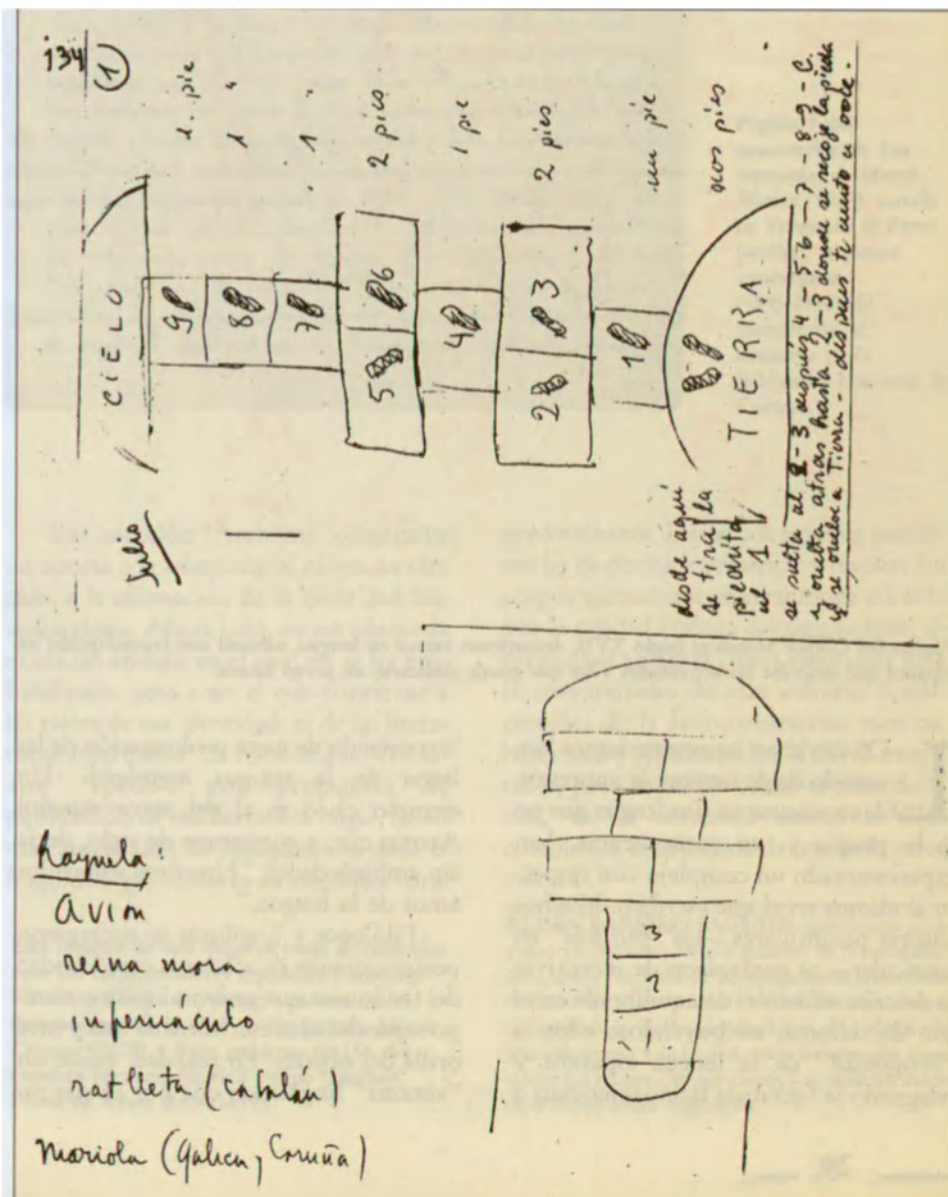 134
(1)
CIELO
9
1 pie
8
1 "
7
1 "
5 6
2 pies
4
1 pie
2 3
2 pies
1
un pie
TIERRA
dos pies
Julio
desde aquí
se tira la
piedrita
al 1
se suelta al 2-3 después 4-5-6-7-8-9-C.
y vuelta atrás hasta 2-3 donde se recoje la piedra
y se vuelve a Tierra - después te cuento u ole -
Rayuela:
avion
reina mora
infernáculo
ratlleta (catalán)
Mariola (Galicia, Coruña)
1
2
3